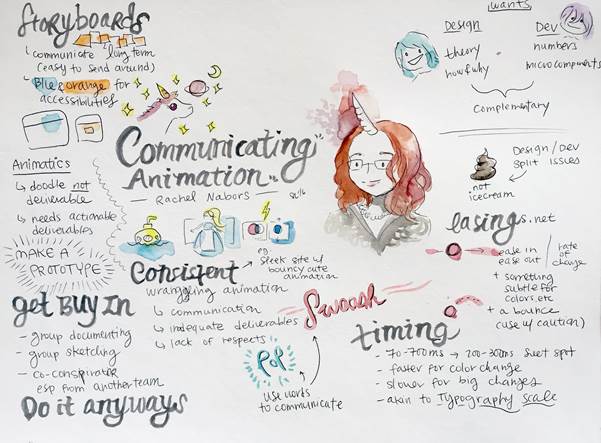 Storyboards
communicate long term
(easy to send around)
Blue & orange for
accessibilities
Animatics
doodle not
deliverable
needs actionable
deliverables
MAKE A
PROTOTYPE
get BUY IN
- group documenting
- group sketching
- co-conspirator
esp from another team
Do it anyways
Communicating
Animation
- Rachel Nabors -
Consistent
eg.
sleek site w/
bouncy cute
animation
wranggling animation
communication
inadequate deliverables
lack of respects
Swoosh
POP
use words
to communicate
wants
Design
theory
how & why
Dev
numbers
microcomponents
Complementary
Design / Dev
split issues
not
icecream
easings.net
ease in
ease out
rate of
change
+ something
subtle for
colors, etc
+ a bounce
(use w/ caution)
timing
- 70-700ms → 200-300ms sweet spot
- faster for color change
- slower for big changes
- akin to Typography scale